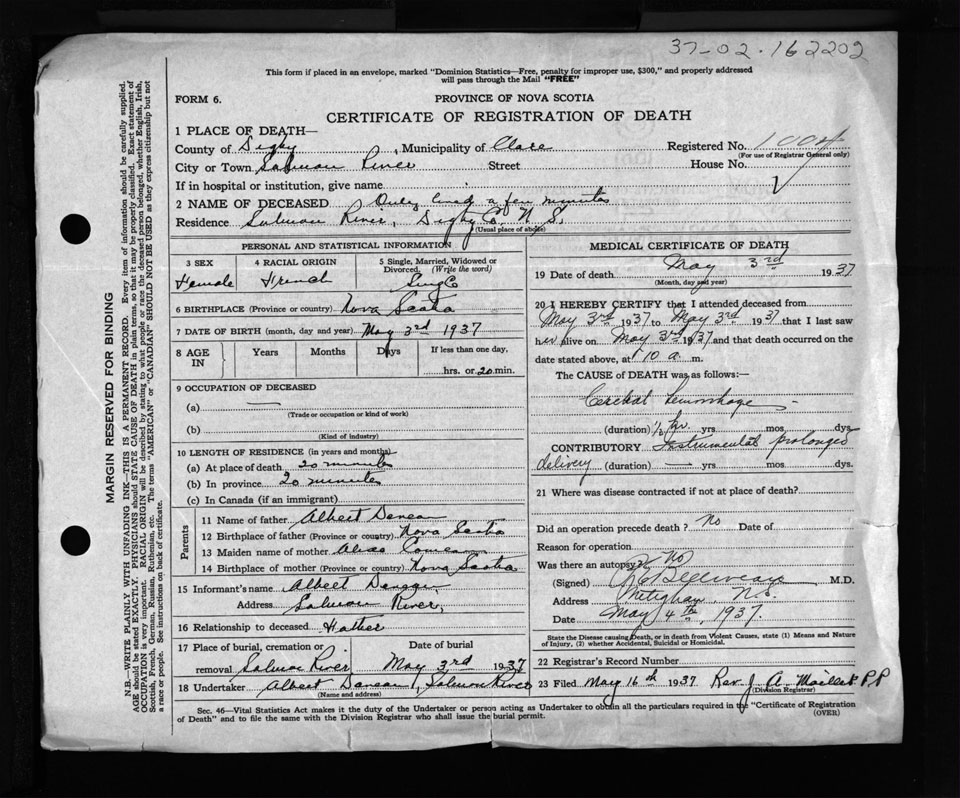 37-02-162202
This form if placed in an envelope, marked "Dominion Statistics—Free, penalty for improper use, $300," and properly addressed
will pass through the Mail "FREE"
FORM 6.
PROVINCE OF NOVA SCOTIA
CERTIFICATE OF REGISTRATION OF DEATH
1 PLACE OF DEATH—
County of Digby, Municipality of Clare Registered No. 1004
(For use of Registrar General only)
City or Town Salmon River Street House No.
If in hospital or institution, give name
2 NAME OF DECEASED Only lived a few minutes
Residence Salmon River, Digby Co. N S.
(Usual place of abode)
PERSONAL AND STATISTICAL INFORMATION
3 SEX 4 RACIAL ORIGIN 5 Single, Married, Widowed or
Divorced. (Write the word)
Female French
6 BIRTHPLACE (Province or country) Nova Scotia
7 DATE OF BIRTH (month, day and year) May 3rd 1937
8 AGE IN Years Months Days If less than one day,
hrs. or 20 min.
9 OCCUPATION OF DECEASED
(a)
(Trade or occupation or kind of work)
(b)
(Kind of industry)
10 LENGTH OF RESIDENCE (in years and months)
(a) At place of death 20 minutes
(b) In province 20 minutes
(c) In Canada (if an immigrant)
Parents
11 Name of father Albert Deveau
12 Birthplace of father (Province or country) Nova Scotia
13 Maiden name of mother Comeau
14 Birthplace of mother (Province or country) Nova Scotia
15 Informant's name Albert Deveau
Address Salmon River,
16 Relationship to deceased Father
17 Place of burial, cremation or Date of burial
removal Salmon River May 3rd 1937
18 Undertaker Albert Deveau, Salmon River
(Name and address)
MEDICAL CERTIFICATE OF DEATH
19 Date of death May 3rd 1937
(Month, day and year)
20 I HEREBY CERTIFY that I attended deceased from
May 3rd 1937 to May 3rd 1937 that I last saw
her alive on May 3rd 1937 and that death occurred on the
date stated above, at 10 a. m.
The CAUSE of DEATH was as follows:—
Cerebral hemorrhage
(duration) ½ hr. yrs mos dys.
CONTRIBUTORY Instrumental prolonged
delivery (duration) — yrs mos. dys.
21 Where was disease contracted if not at place of death?
Did an operation precede death? No Date of
Reason for operation
Was there an autopsy? No
(Signed) Belliveau M.D.
Address Meteghan, N.S.
Date May 4th, 1937.
State the Disease causing Death, or in death from Violent Causes, state (1) Means and Nature
of Injury, (2) whether Accidental, Suicidal or Homicidal.
22 Registrar's Record Number
23 Filed May 16th 1937 Rev. J. A. Maillet P.P.
(Division Registrar)
Sec. 46—Vital Statistics Act makes it the duty of the Undertaker or person acting as Undertaker to obtain all the particulars required in the "Certificate of Registration
of Death" and to file the same with the Division Registrar who shall issue the burial permit.
(OVER)
MARGIN RESERVED FOR BINDING
N.B.—WRITE PLAINLY WITH UNFADING INK—THIS IS A PERMANENT RECORD. Every item of information should be carefully supplied.
AGE should be stated EXACTLY. PHYSICIANS should STATE CAUSE OF DEATH in plain terms, so that it may be properly classified. Exact statement of
OCCUPATION is very important. RACIAL ORIGIN will be described by stating to what people or race the deceased person belonged, whether English, Irish,
Scottish, French, German, Russian, Ruthenian, etc. The terms "AMERICAN" or "CANADIAN" SHOULD NOT BE USED as they express citizenship but not
a race or people. See instructions on back of certificate.